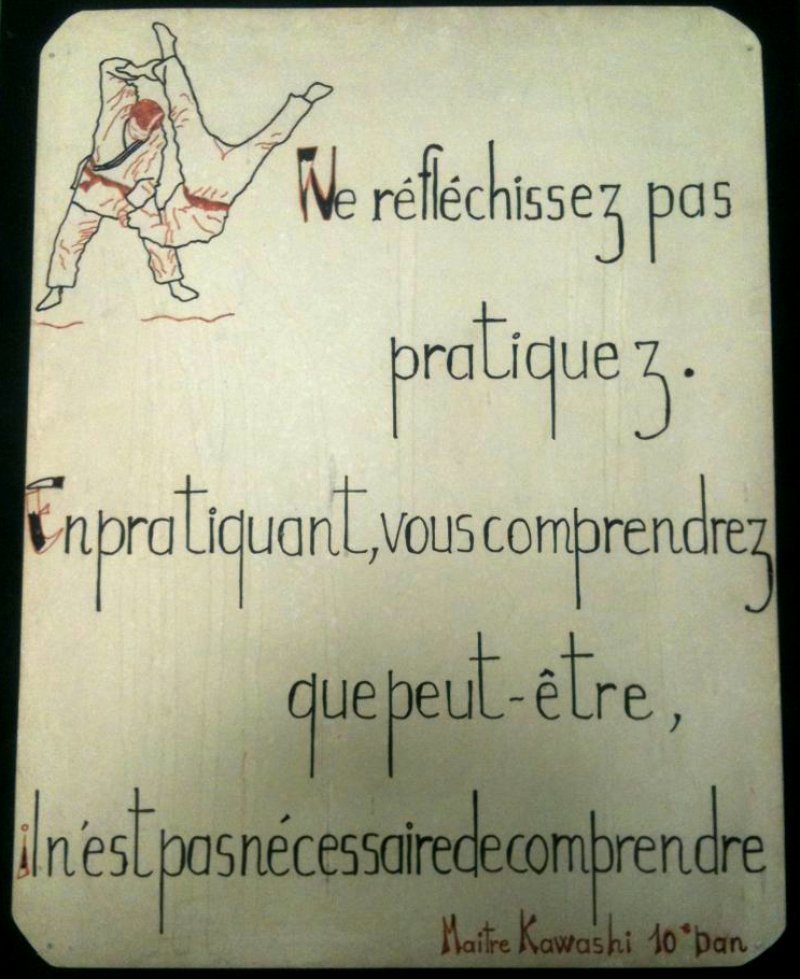 Ne réfléchissez pas
pratiquez.
En pratiquant, vous comprendrez
que peut-être,
il n'est pas nécessaire de comprendre
Maitre Kawashi 10° Dan